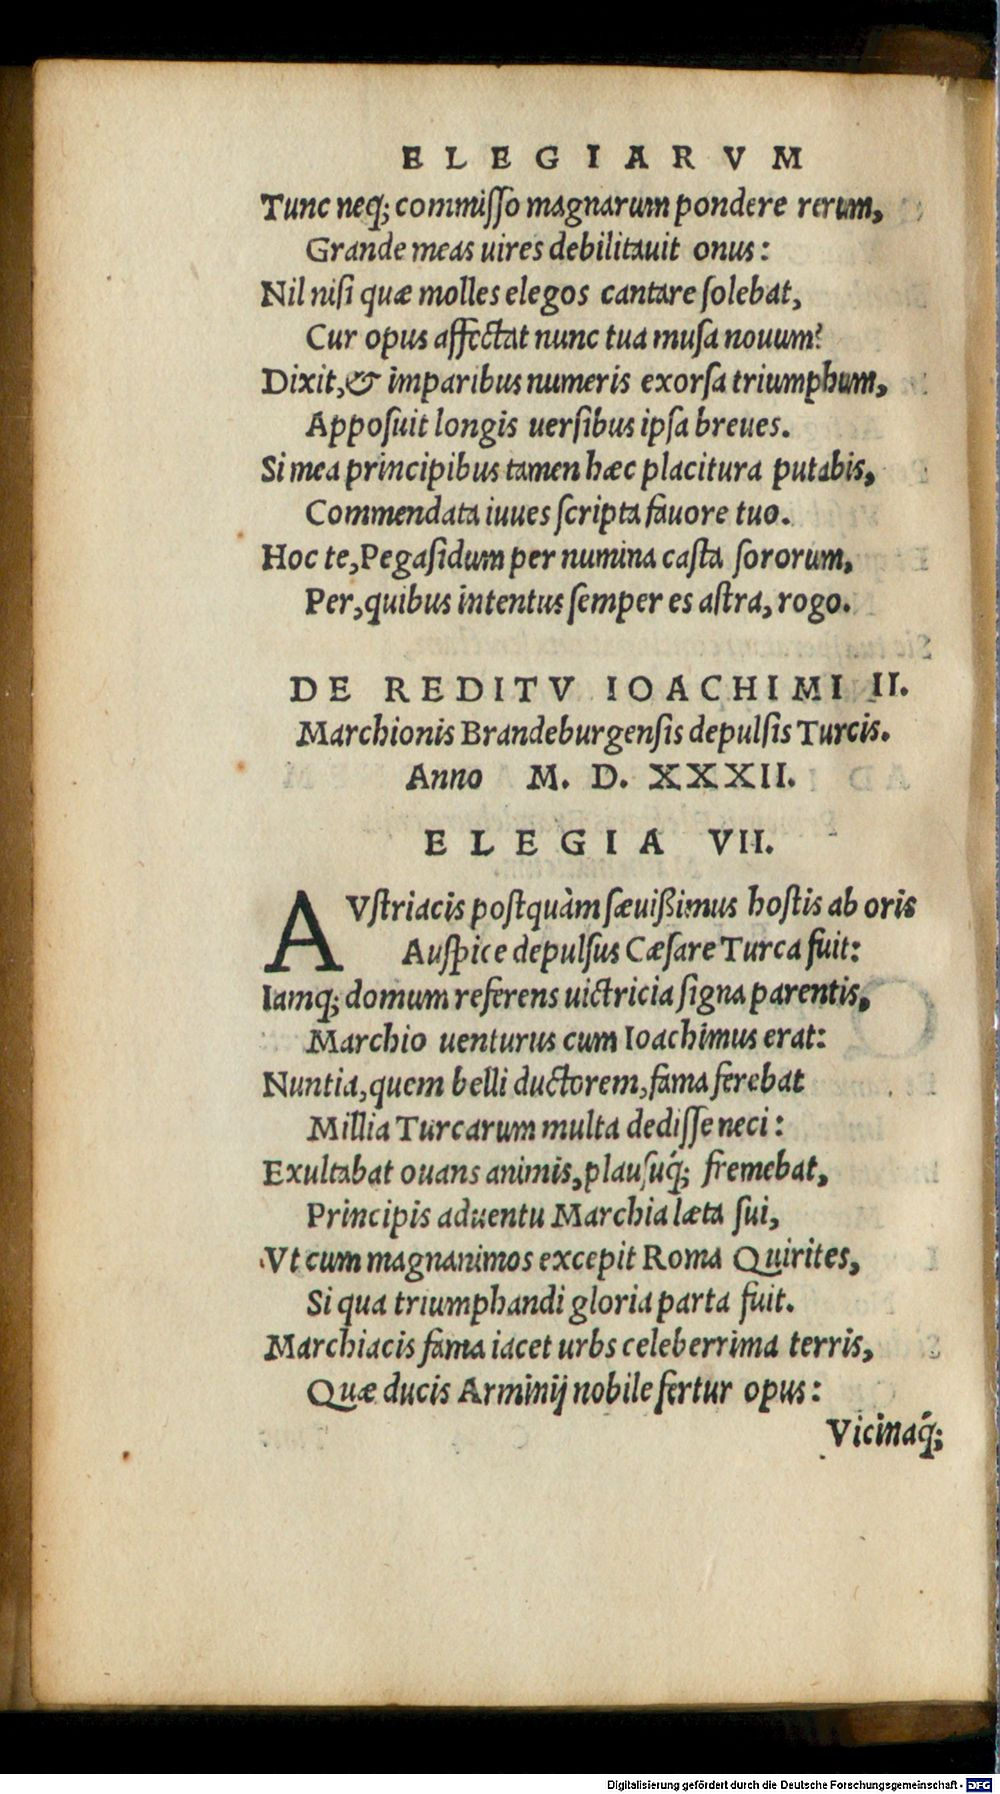 ELEGIARVM
Tunc neq; commiſſo magnarum pondere rerum,
Grande meas uires debilitauit onus:
Nil niſi quæ molles elegos cantare ſolebat,
Cur opus affectat nunc tua muſa nouum?
Dixit, & imparibus numeris exorſa triumphum,
Appoſuit longis uerſibus ipſa breues.
Si mea principibus tamen hæc placitura putabis,
Commendata iuues ſcripta fauore tuo.
Hoc te, Pegaſidum per numina caſta ſororum,
Per, quibus intentus ſemper es aſtra, rogo.
DE REDITV IOACHIMI II.
Marchionis Brandeburgenſis depulſis Turcis.
Anno M. D. XXXII.
ELEGIA VII.
AVſtriacis poſtquàm ſæuißimus hoſtis ab oris
Auſpice depulſus Cæſare Turca fuit:
Iamq; domum referens uictricia ſigna parentis,
Marchio uenturus cum Ioachimus erat:
Nuntia, quem belli ductorem, fama ferebat
Millia Turcarum multa dediſſe neci:
Exultabat ouans animis, plauſuq́; fremebat,
Principis aduentu Marchia læta ſui,
Vt cum magnanimos excepit Roma Quirites,
Si qua triumphandi gloria parta fuit.
Marchiacis fama iacet urbs celeberrima terris,
Quæ ducis Arminij nobile fertur opus:
Vicinaq́;
Digitalisierung gefördert durch die Deutsche Forschungsgemeinschaft - DFG